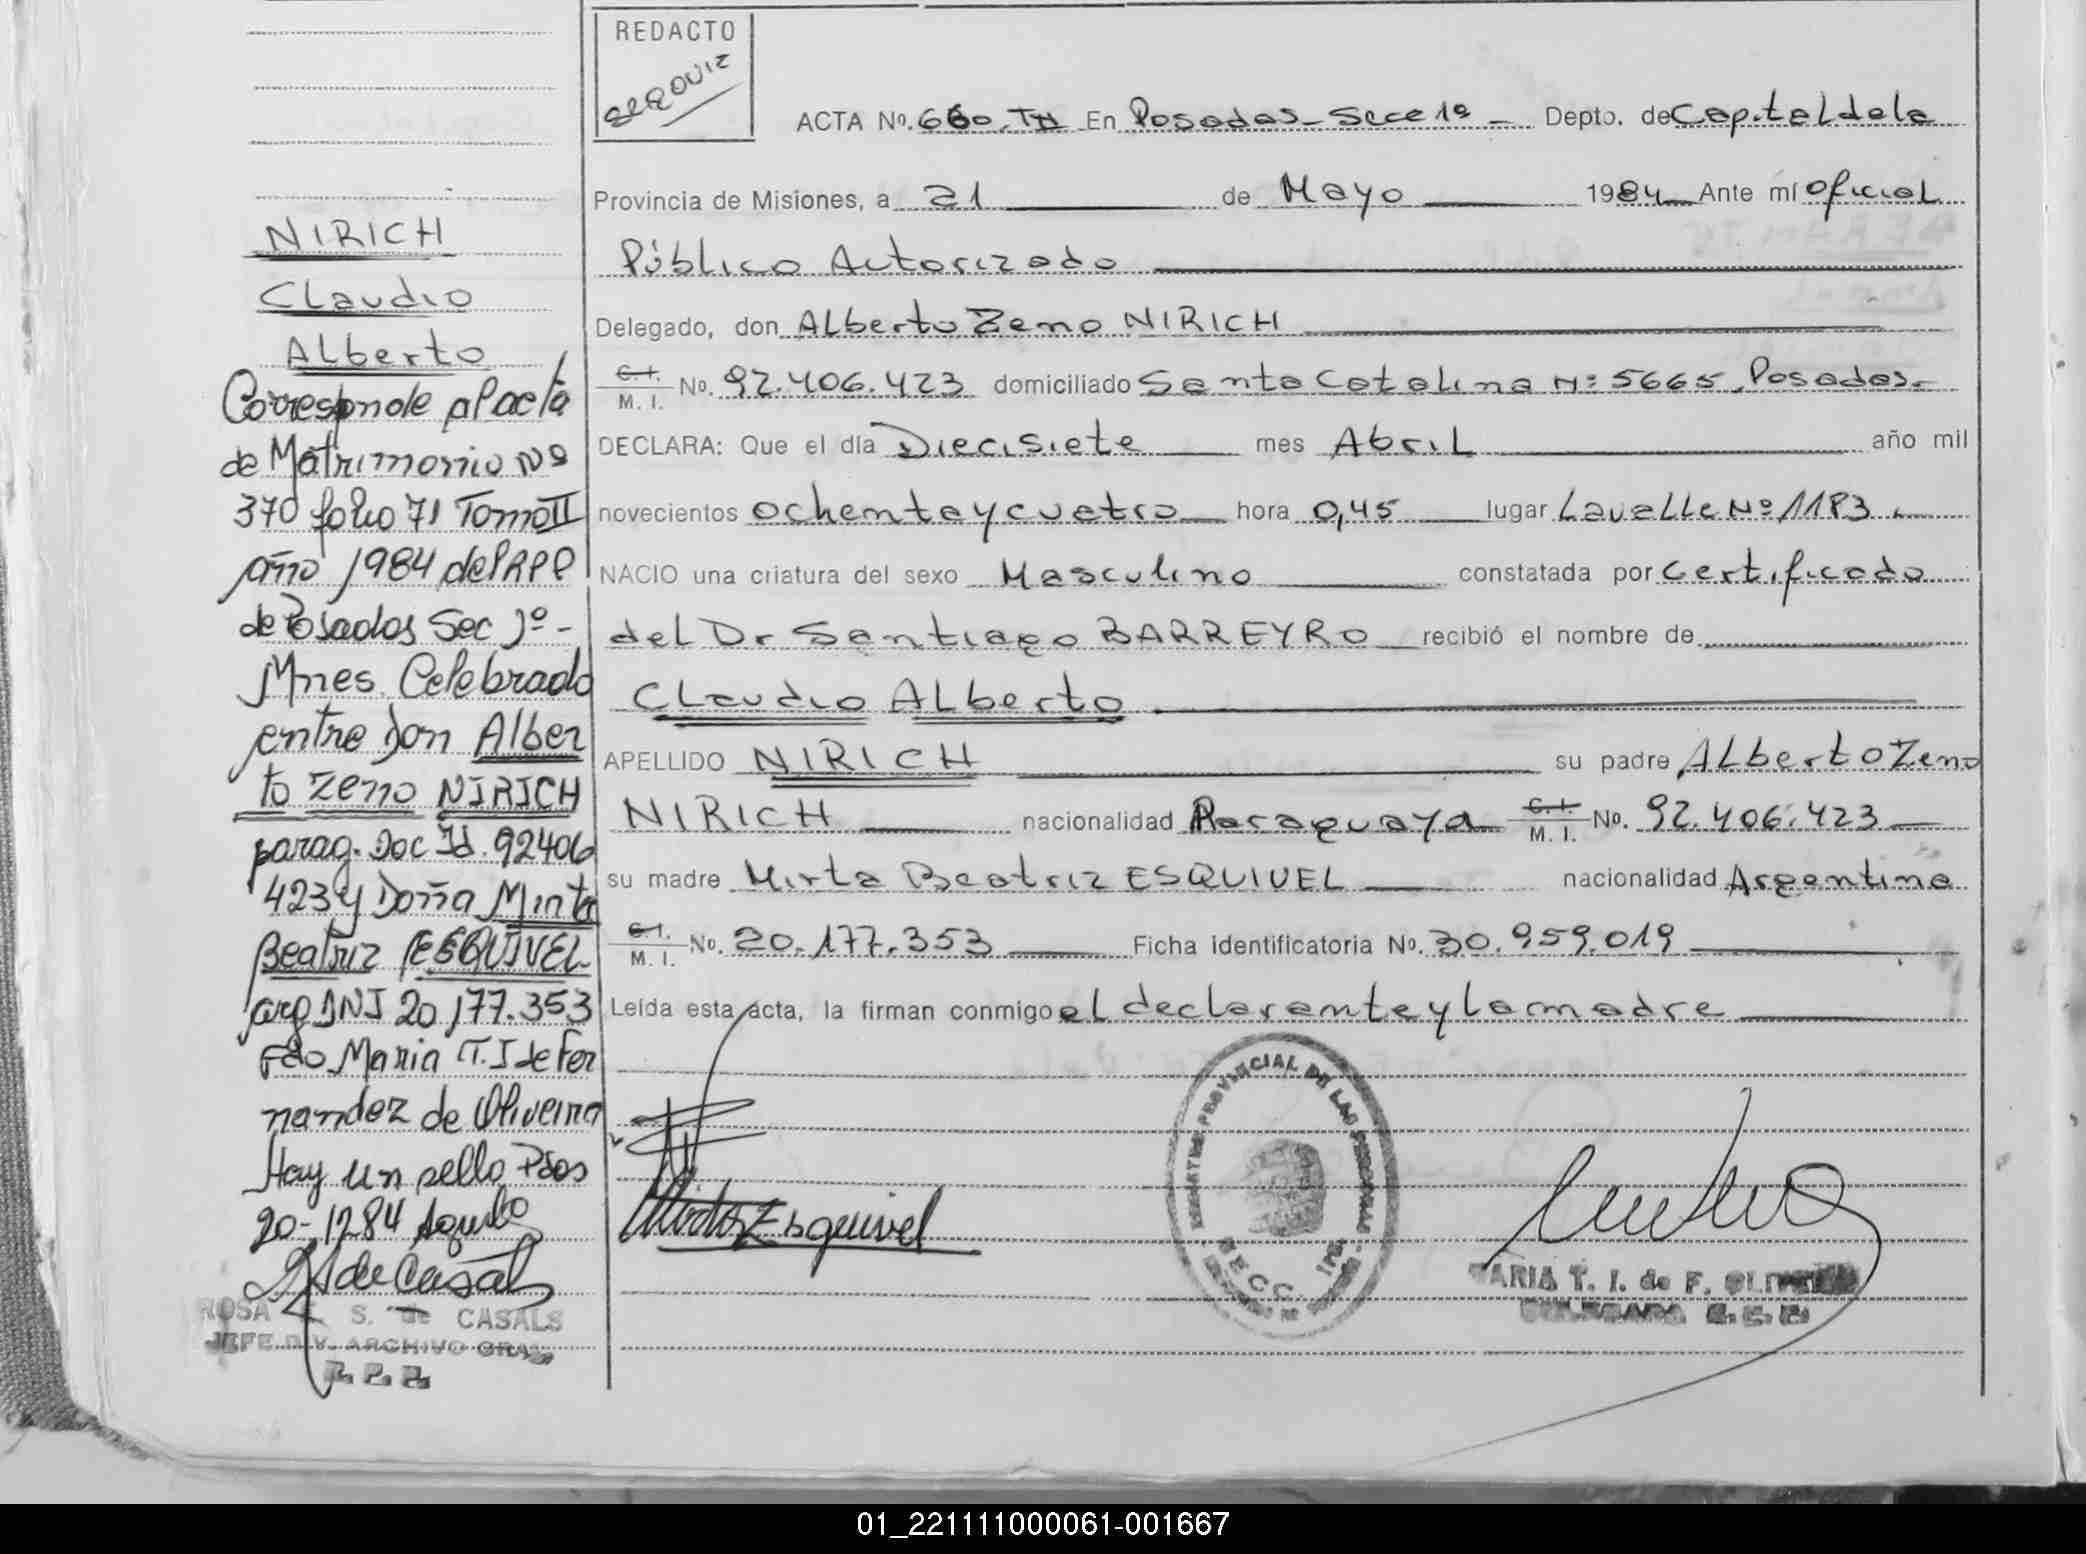 REDACTO
SEQOUIZ
ACTA No. 660. TH En Posadas_Secc 1º _ Depto. de Capital de la
Provincia de Misiones, a 21 de Mayo 1984 Ante mí Oficial
Público Autorizado
Delegado, don Alberto Zeno NIRICH
C. I.
M. I.
No. 92.406.423 domiciliado Santa Catalina Nº 5665, Posadas.
DECLARA: Que el día Diecisiete mes Abril año mil
novecientos ochenta y cuatro hora 0,45 lugar Lavalle Nº 1183.
NACIO una criatura del sexo Masculino constatada por Certificado
del Dr Santiago BARREYRO recibió el nombre de
Claudio Alberto
APELLIDO NIRICH su padre Alberto Zeno
NIRICH nacionalidad Paraguaya C. I.
M. I. No. 92.406.423
su madre Mirta Beatriz ESQUIVEL nacionalidad Argentina
C. I.
M. I. No. 20.177.353 Ficha identificatoria No. 30.959.019
Leída esta acta, la firman conmigo el declarante y la madre
Mirta Esquivel
MARIA T. I. de F. OLIVEIRA
DELEGADA
NIRICH
Claudio
Alberto
Corresponde al acta
de Matrimonio Nº
370 folio 71 Tomo II
año 1984 del RPP
de Posadas Sec 1º -
Mnes. Celebrado
entre Don Alber
to Zeno NIRICH
parag. Doc Id. 92406
423 y Doña Mirta
Beatriz ESQUIVEL
arg DNI 20.177.353
Fdo Maria T. I de Fer
nandez de Oliveira
Hay un sello Pdas
20-1284
de Casals
ROSA S. de CASALS
JEFE DIV. ARCHIVO GRAL
R. P. P.
01_221111000061-001667